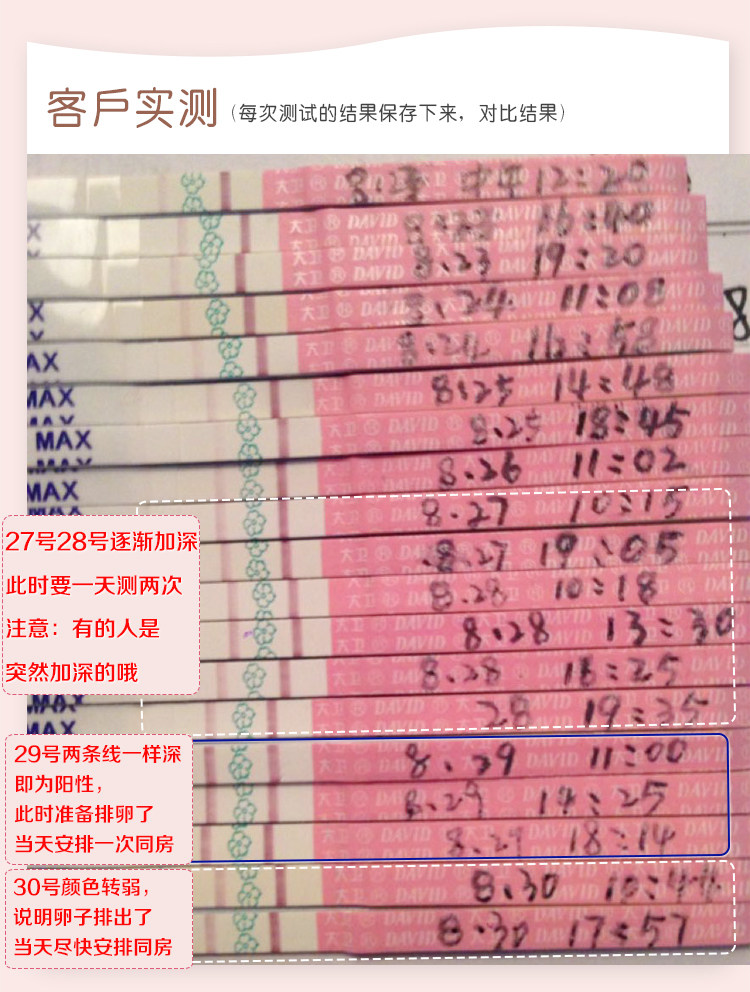 客戶实测（每次测试的结果保存下来，对比结果）
中午12:20
16:40
8.23 19:20
8.24 11:08
8.24 16:58
8.25 14:48
8.25 18:45
8.26 11:02
8.27 10:15
8.27 19:05
8.28 10:18
8.28 13:30
8.28 18:25
28 19:35
8.29 11:00
8.29 14:25
8.29 18:14
8.30 10:44
8.30 17:57
大卫 DAVID
X
X
AX
MAX
MAX
MAX
MAX
27号28号逐渐加深
此时要一天测两次
注意：有的人是
突然加深的哦
29号两条线一样深
即为阳性，
此时准备排卵了
当天安排一次同房
30号颜色转弱，
说明卵子排出了
当天尽快安排同房
8